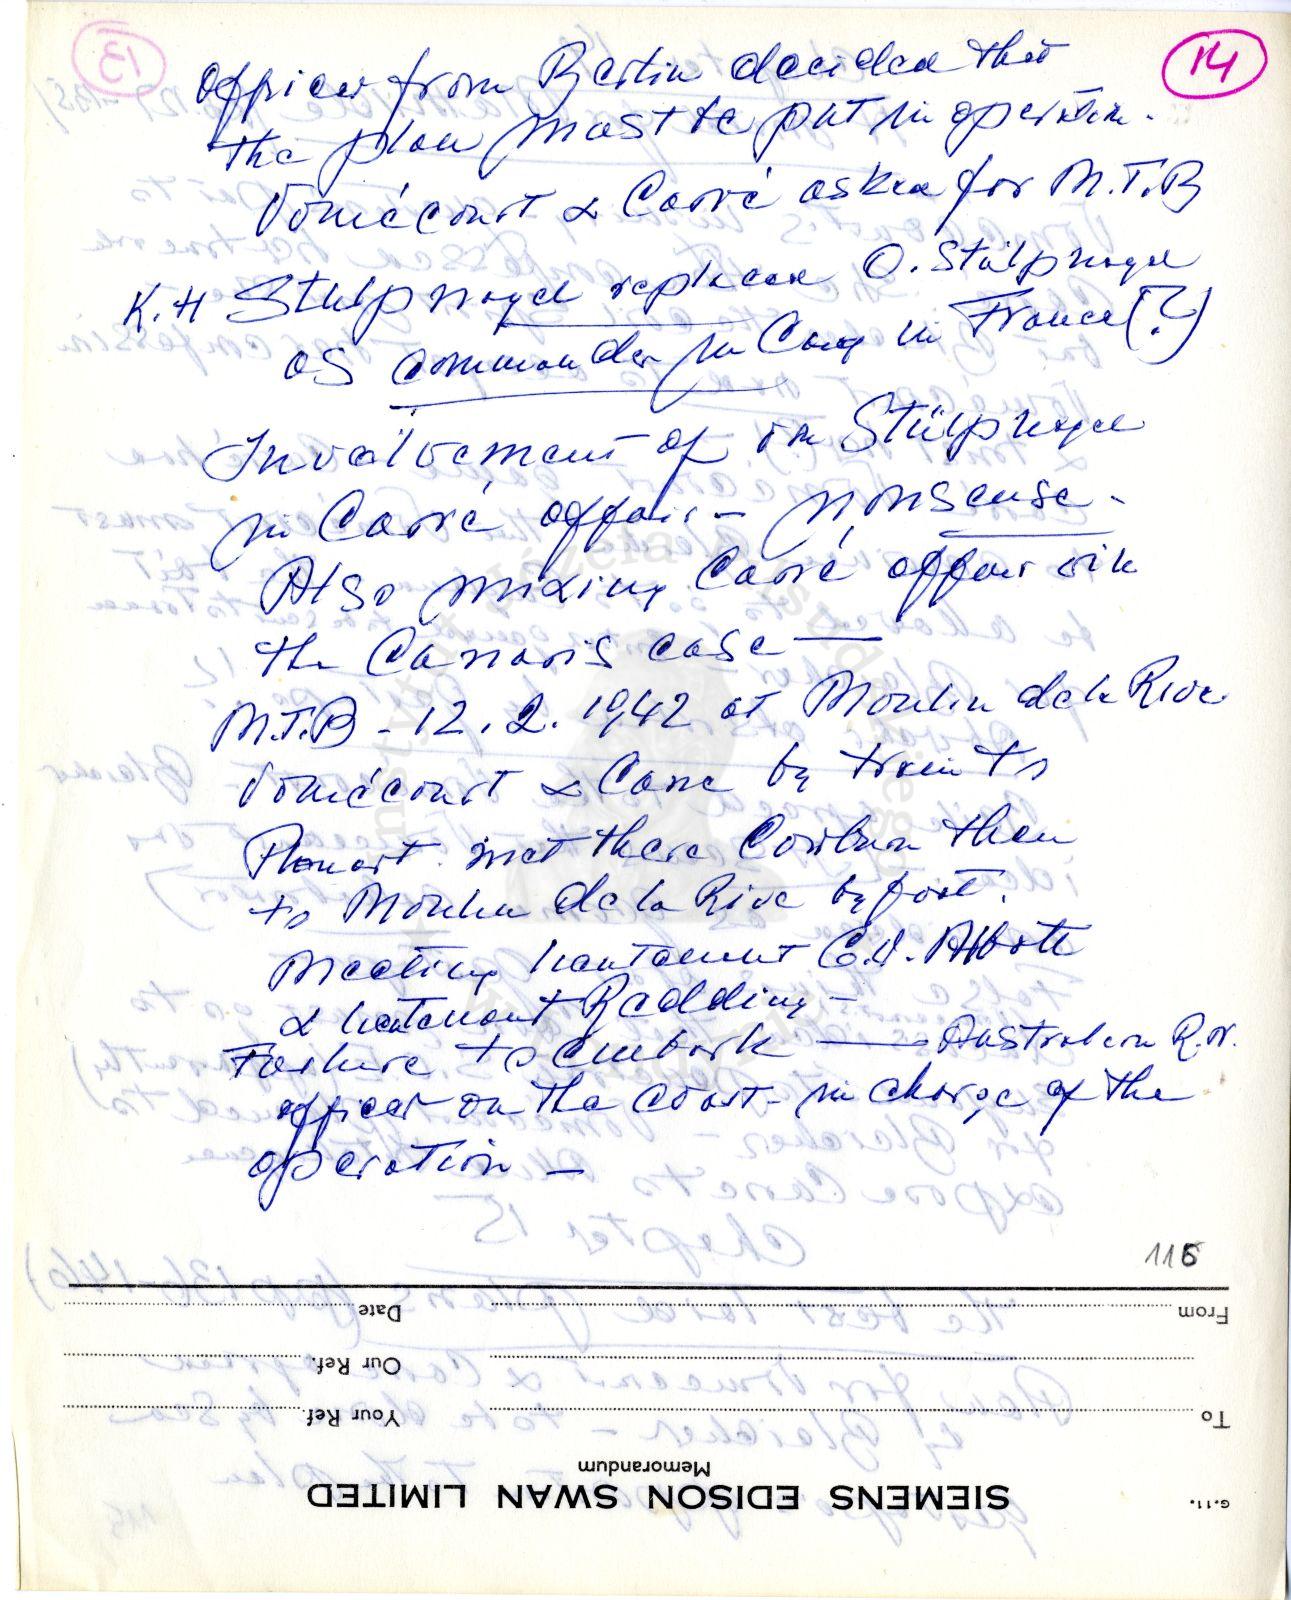 14
Officer from Berlin decided that
the plan must be put in operation.
Vomécourt & Carré asked for M.T.B
K.H Stülpnagel replaced O. Stülpnagel
as commander in Cong in France (?)
Involvement of von Stülpnagel
in Carré affair - nonsense -
Also mixing Carré affair with
the Canaris case —
M.T.B - 12.2.1942 at Moulin de la Rive
Vomécourt & Carré by train to
met there Cowburn then
to Moulin de la Rive by foot.
Meeting lieutenant G.W. Abbott
& lieutenant Redding -
Failure to embark — Australian R.N.
officer on the coast - in charge of the
operation -
115
From
Date
Our Ref.
To
Your Ref.
Memorandum
SIEMENS EDISON SWAN LIMITED
G.11.
13
Instytut Józefa Piłsudskiego